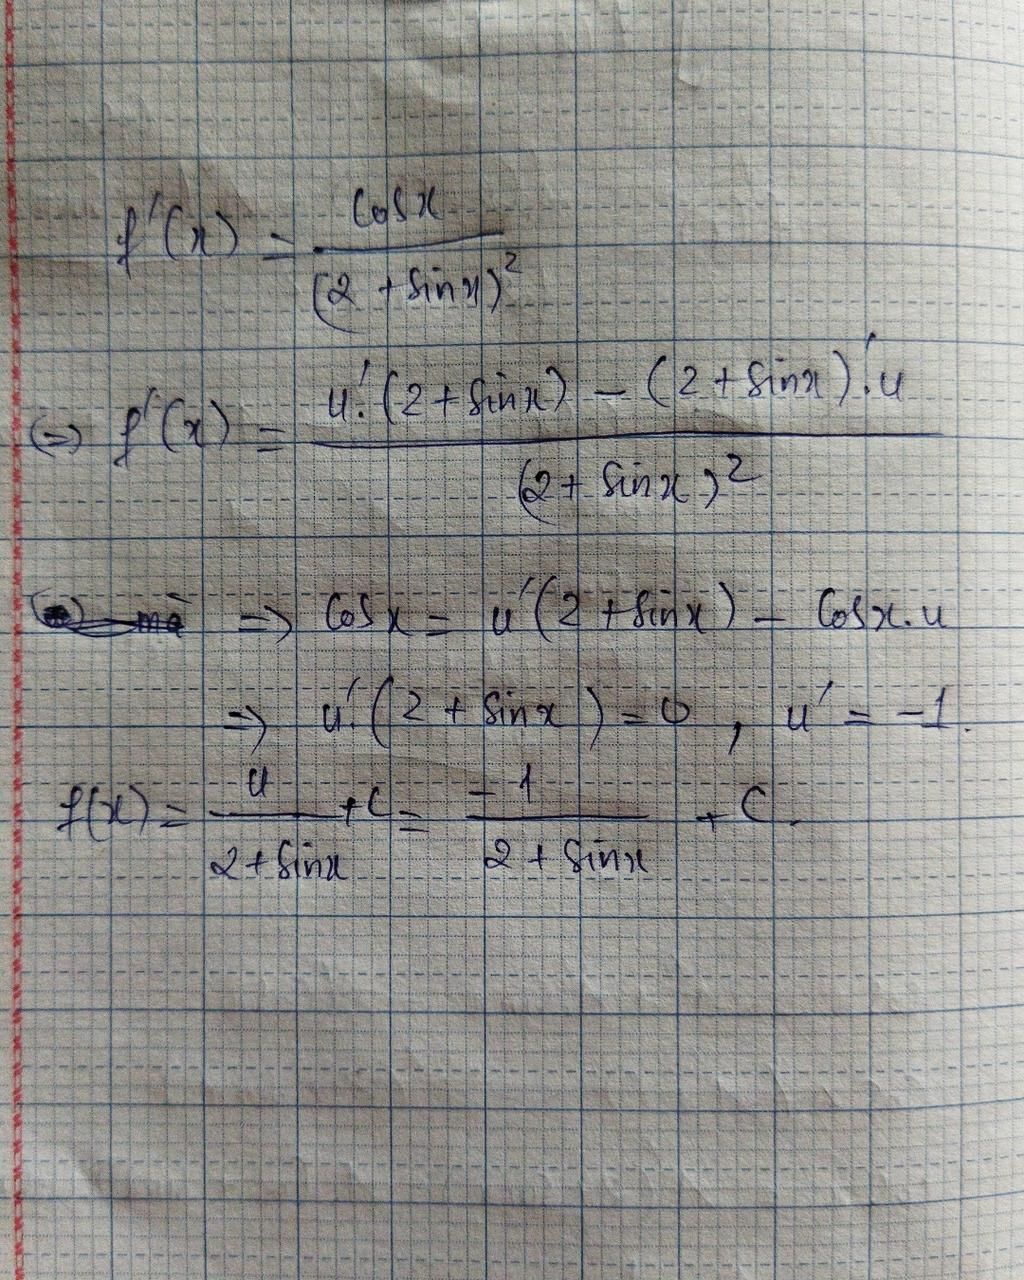 f'(x) = cosx / (2 + sinx)²
(=) f'(x) = u'.(2 + sinx) - (2 + sinx)'.u / (2 + sinx)²
=> cosx = u'(2 + sinx) - cosx.u
=> u'.(2 + sinx) = 0 , u' = -1.
f(x) = u / 2 + sinx + C = -1 / 2 + sinx + C.